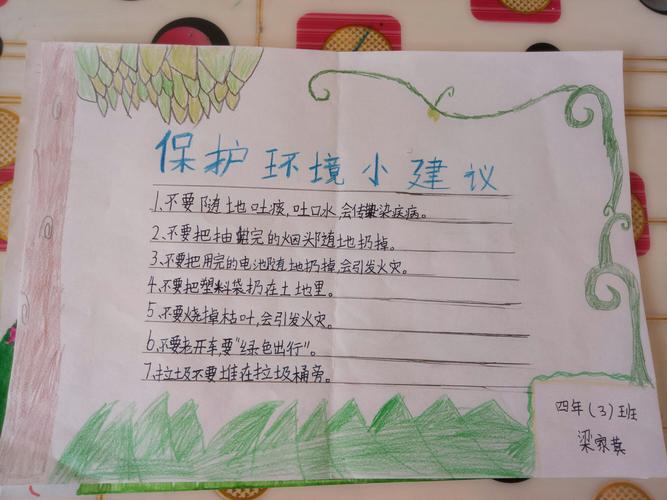 保护环境小建议
1、不要随地吐痰,吐口水,会传染疾病。
2、不要把抽完的烟头随地扔掉。
3、不要把用完的电池随地扔掉,会引发火灾。
4、不要把塑料袋扔在土地里。
5、不要烧掉枯叶,会引发火灾。
6、不要老开车,要"绿色出行"。
7、垃圾不要堆在垃圾桶旁。
四年(3)班
梁家萁